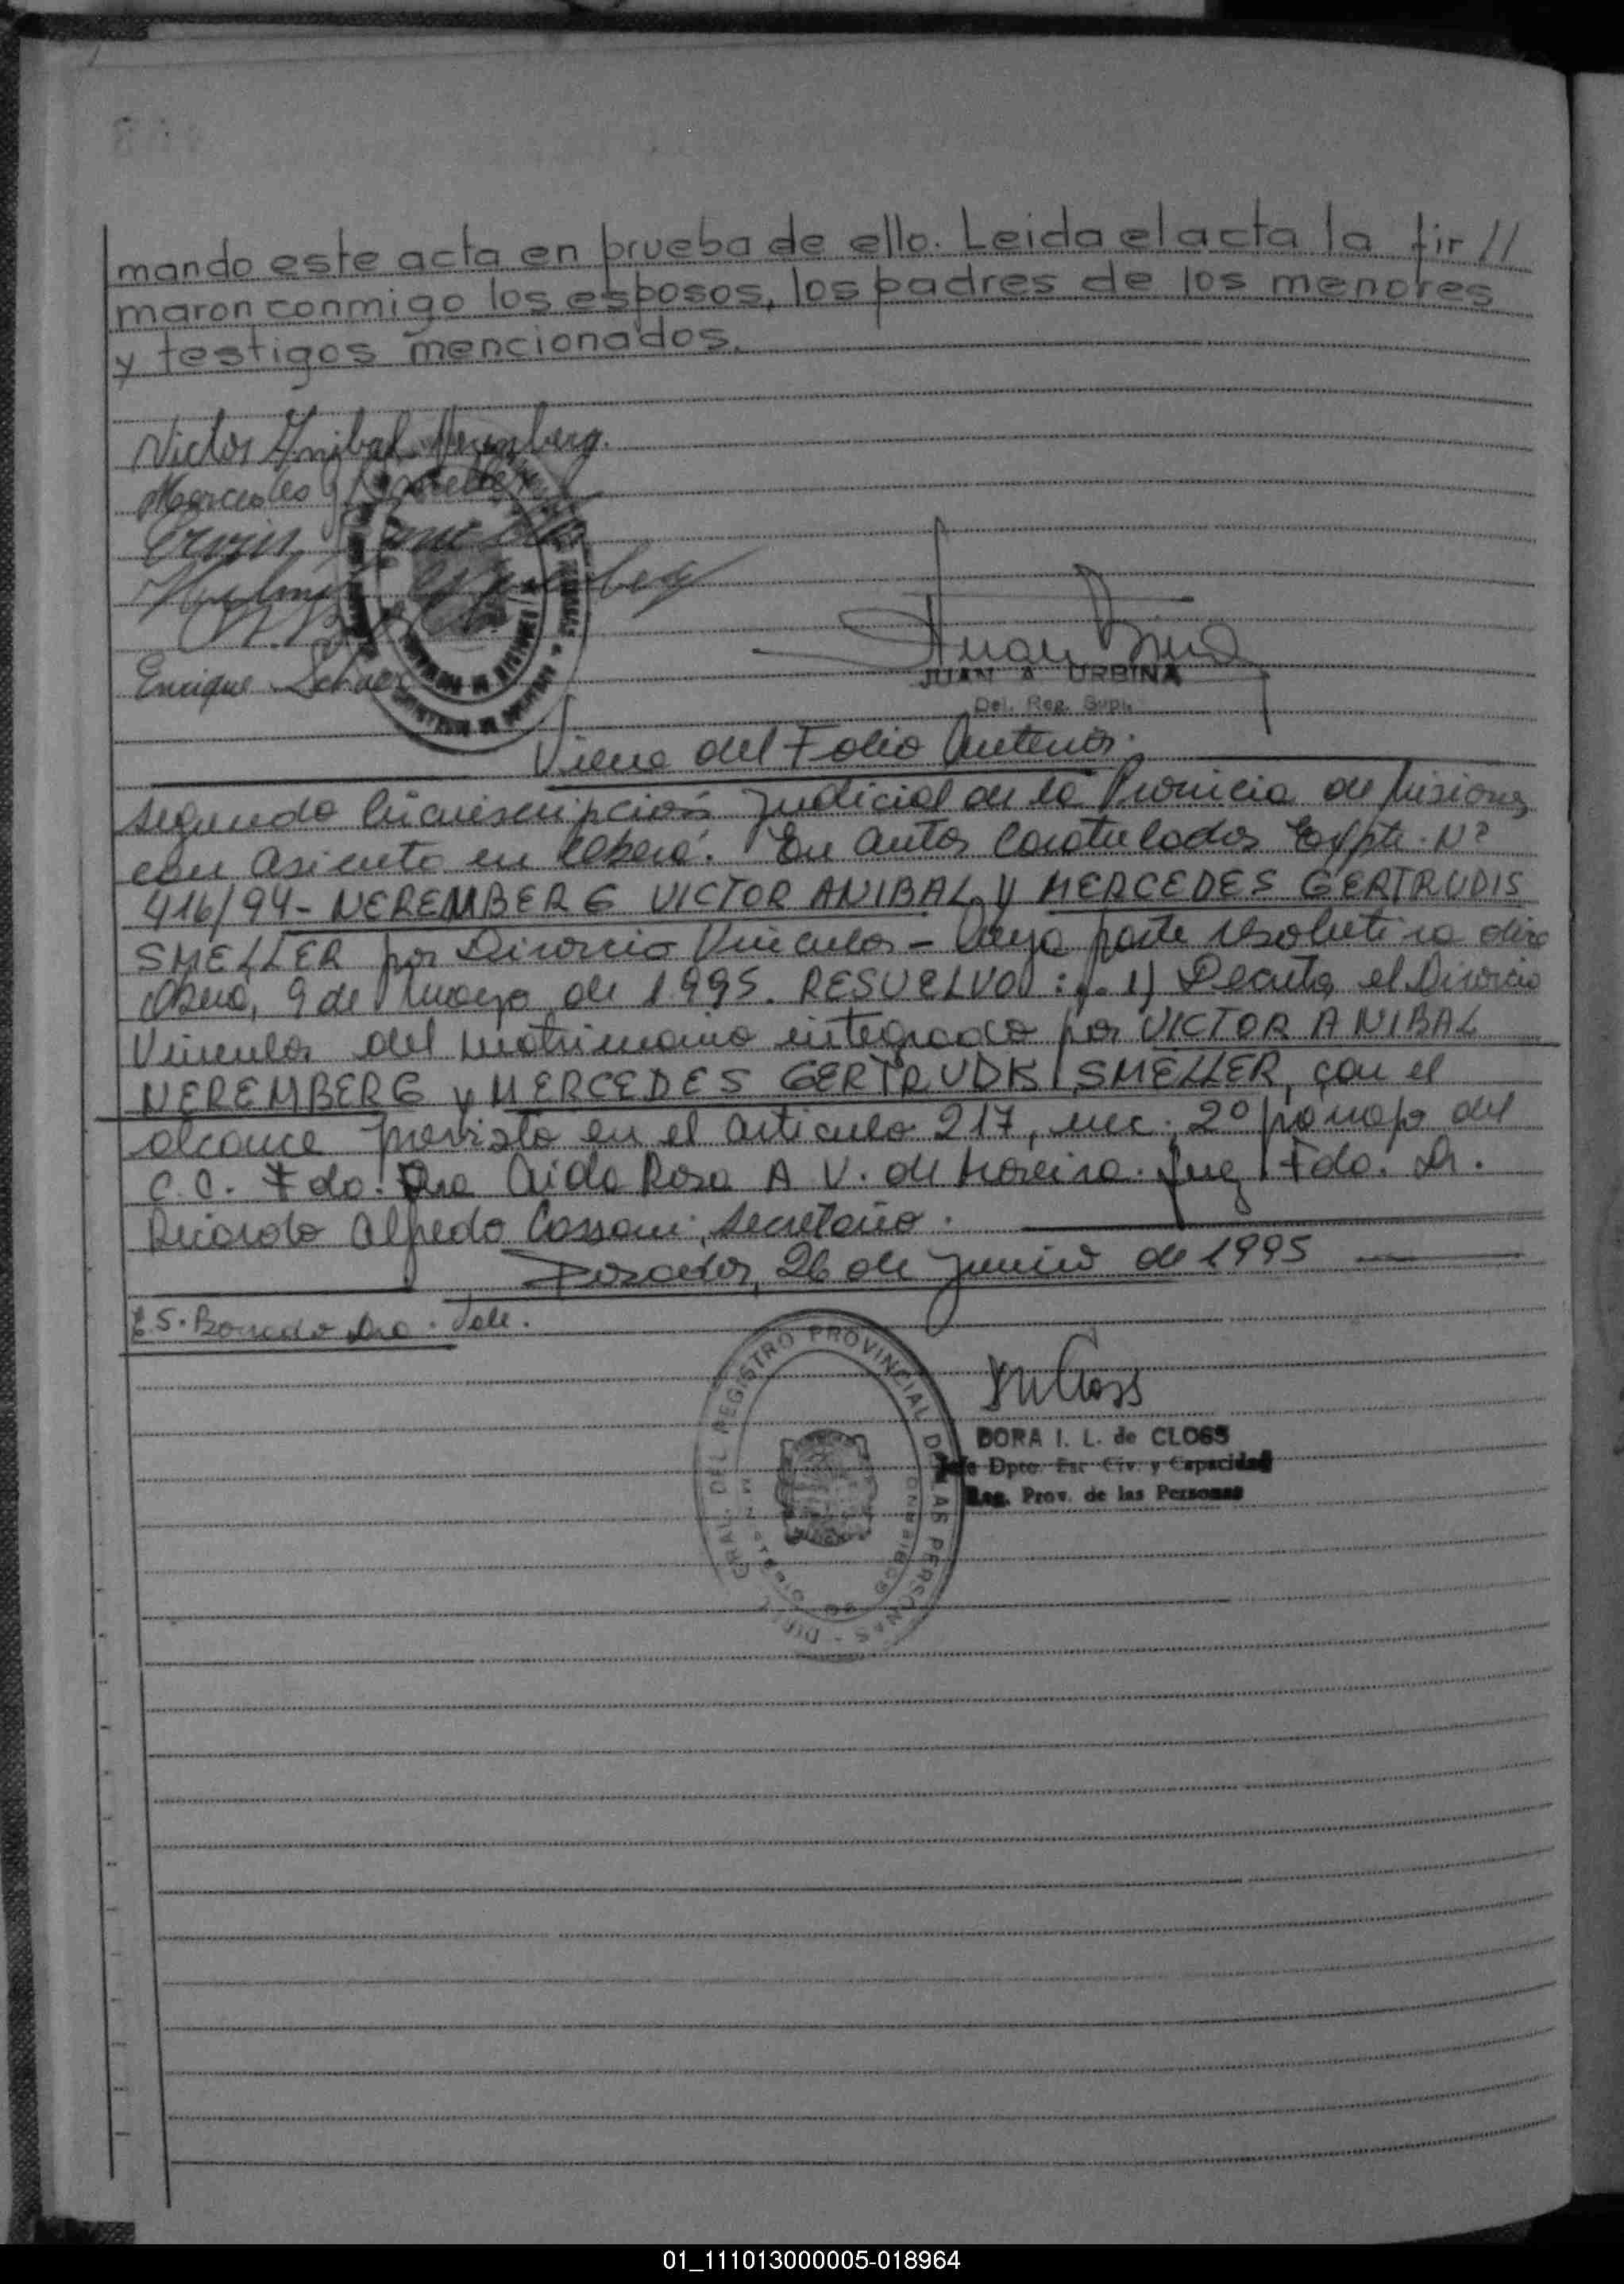 mando este acta en prueba de ello. Leida el acta la fir//
maron conmigo los esposos, los padres de los menores
y testigos mencionados.
Victor Anibal Neremberg.
Mercedes G
Ervin
Enrique
JUAN A URBINA
Del. Reg. Supl.
Viene del Folio Anterior.
segunda Circunscripción Judicial de la Provincia de Misiones,
con asiento en Oberá. En autos Caratulados Expte. Nº
416/94- NEREMBERG VICTOR ANIBAL y MERCEDES GERTRUDIS
SMELLER por Divorcio Vincular - Cuya parte resolutiva dice
Oberá, 9 de marzo de 1995. RESUELVO: 1) Decretar el Divorcio
Vincular del matrimonio integrado por VICTOR ANIBAL
NEREMBERG y MERCEDES GERTRUDIS SMELLER, con el
alcance previsto en el articulo 217, inc. 2º párrafo del
C.C. Fdo. Dra Aida Rosa A V. de Moreira. Juez Fdo. Dr.
Ricardo Alfredo Cassoni, Secretario.
Posadas, 26 de Junio de 1995
E.S. Borrado Dra. Vale.
DORA I. L. de CLOSS
Jefe Dpto. Est. Civ. y Capacidad
Reg. Prov. de las Personas
DIREC. GRAL. DEL REGISTRO PROVINCIAL DE LAS PERSONAS
01_111013000005-018964